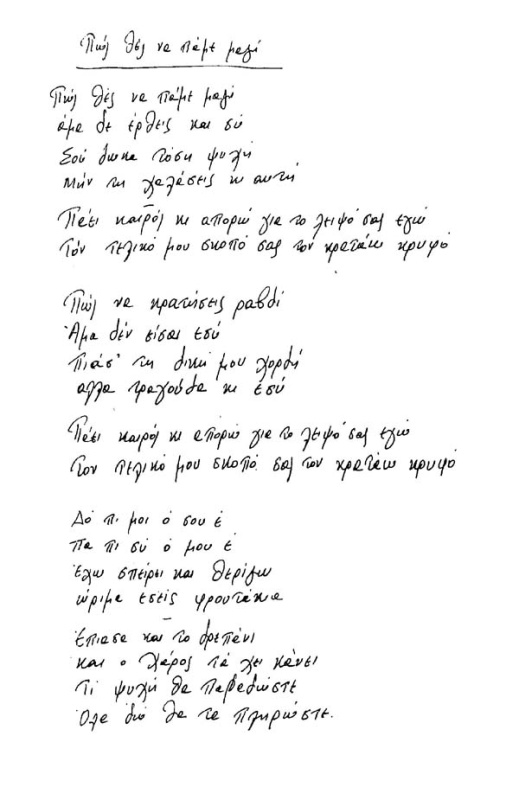 Πώς θες να πάμε μαζί
Πώς θές να πάμε μαζί
άμα δε έρθεις και σύ
Σου δωκα τόση ψυχή
μήν τη χαλάσεις κι αυτή
Πάει καιρός κι απορώ για το λειψό σας εγώ
Τον τελικό μου σκοπό σας τον κρατάω κρυφό
Πώς να κρατήσεις ραβδί
Άμα δέν είσαι εσύ
Πιάσ' τη δική μου χορδή
αλλα τραγούδα κι εσύ
Πάει καιρός κι απορώ για το λειψό σας εγώ
Τον τελικό μου σκοπό σας τον κρατάω κρυφό
Δό πι μοι ό σου έ
Πα πι σύ ό μου έ
Έχω σπείρει και θερίζω
ώριμα εσείς φρουτάκια
Έπιασα και το δρεπάνι
και ο χάρος τά χει κάνει
Τί ψυχή θα παραδώστε
Όλα δώ θα τα πληρώστε.